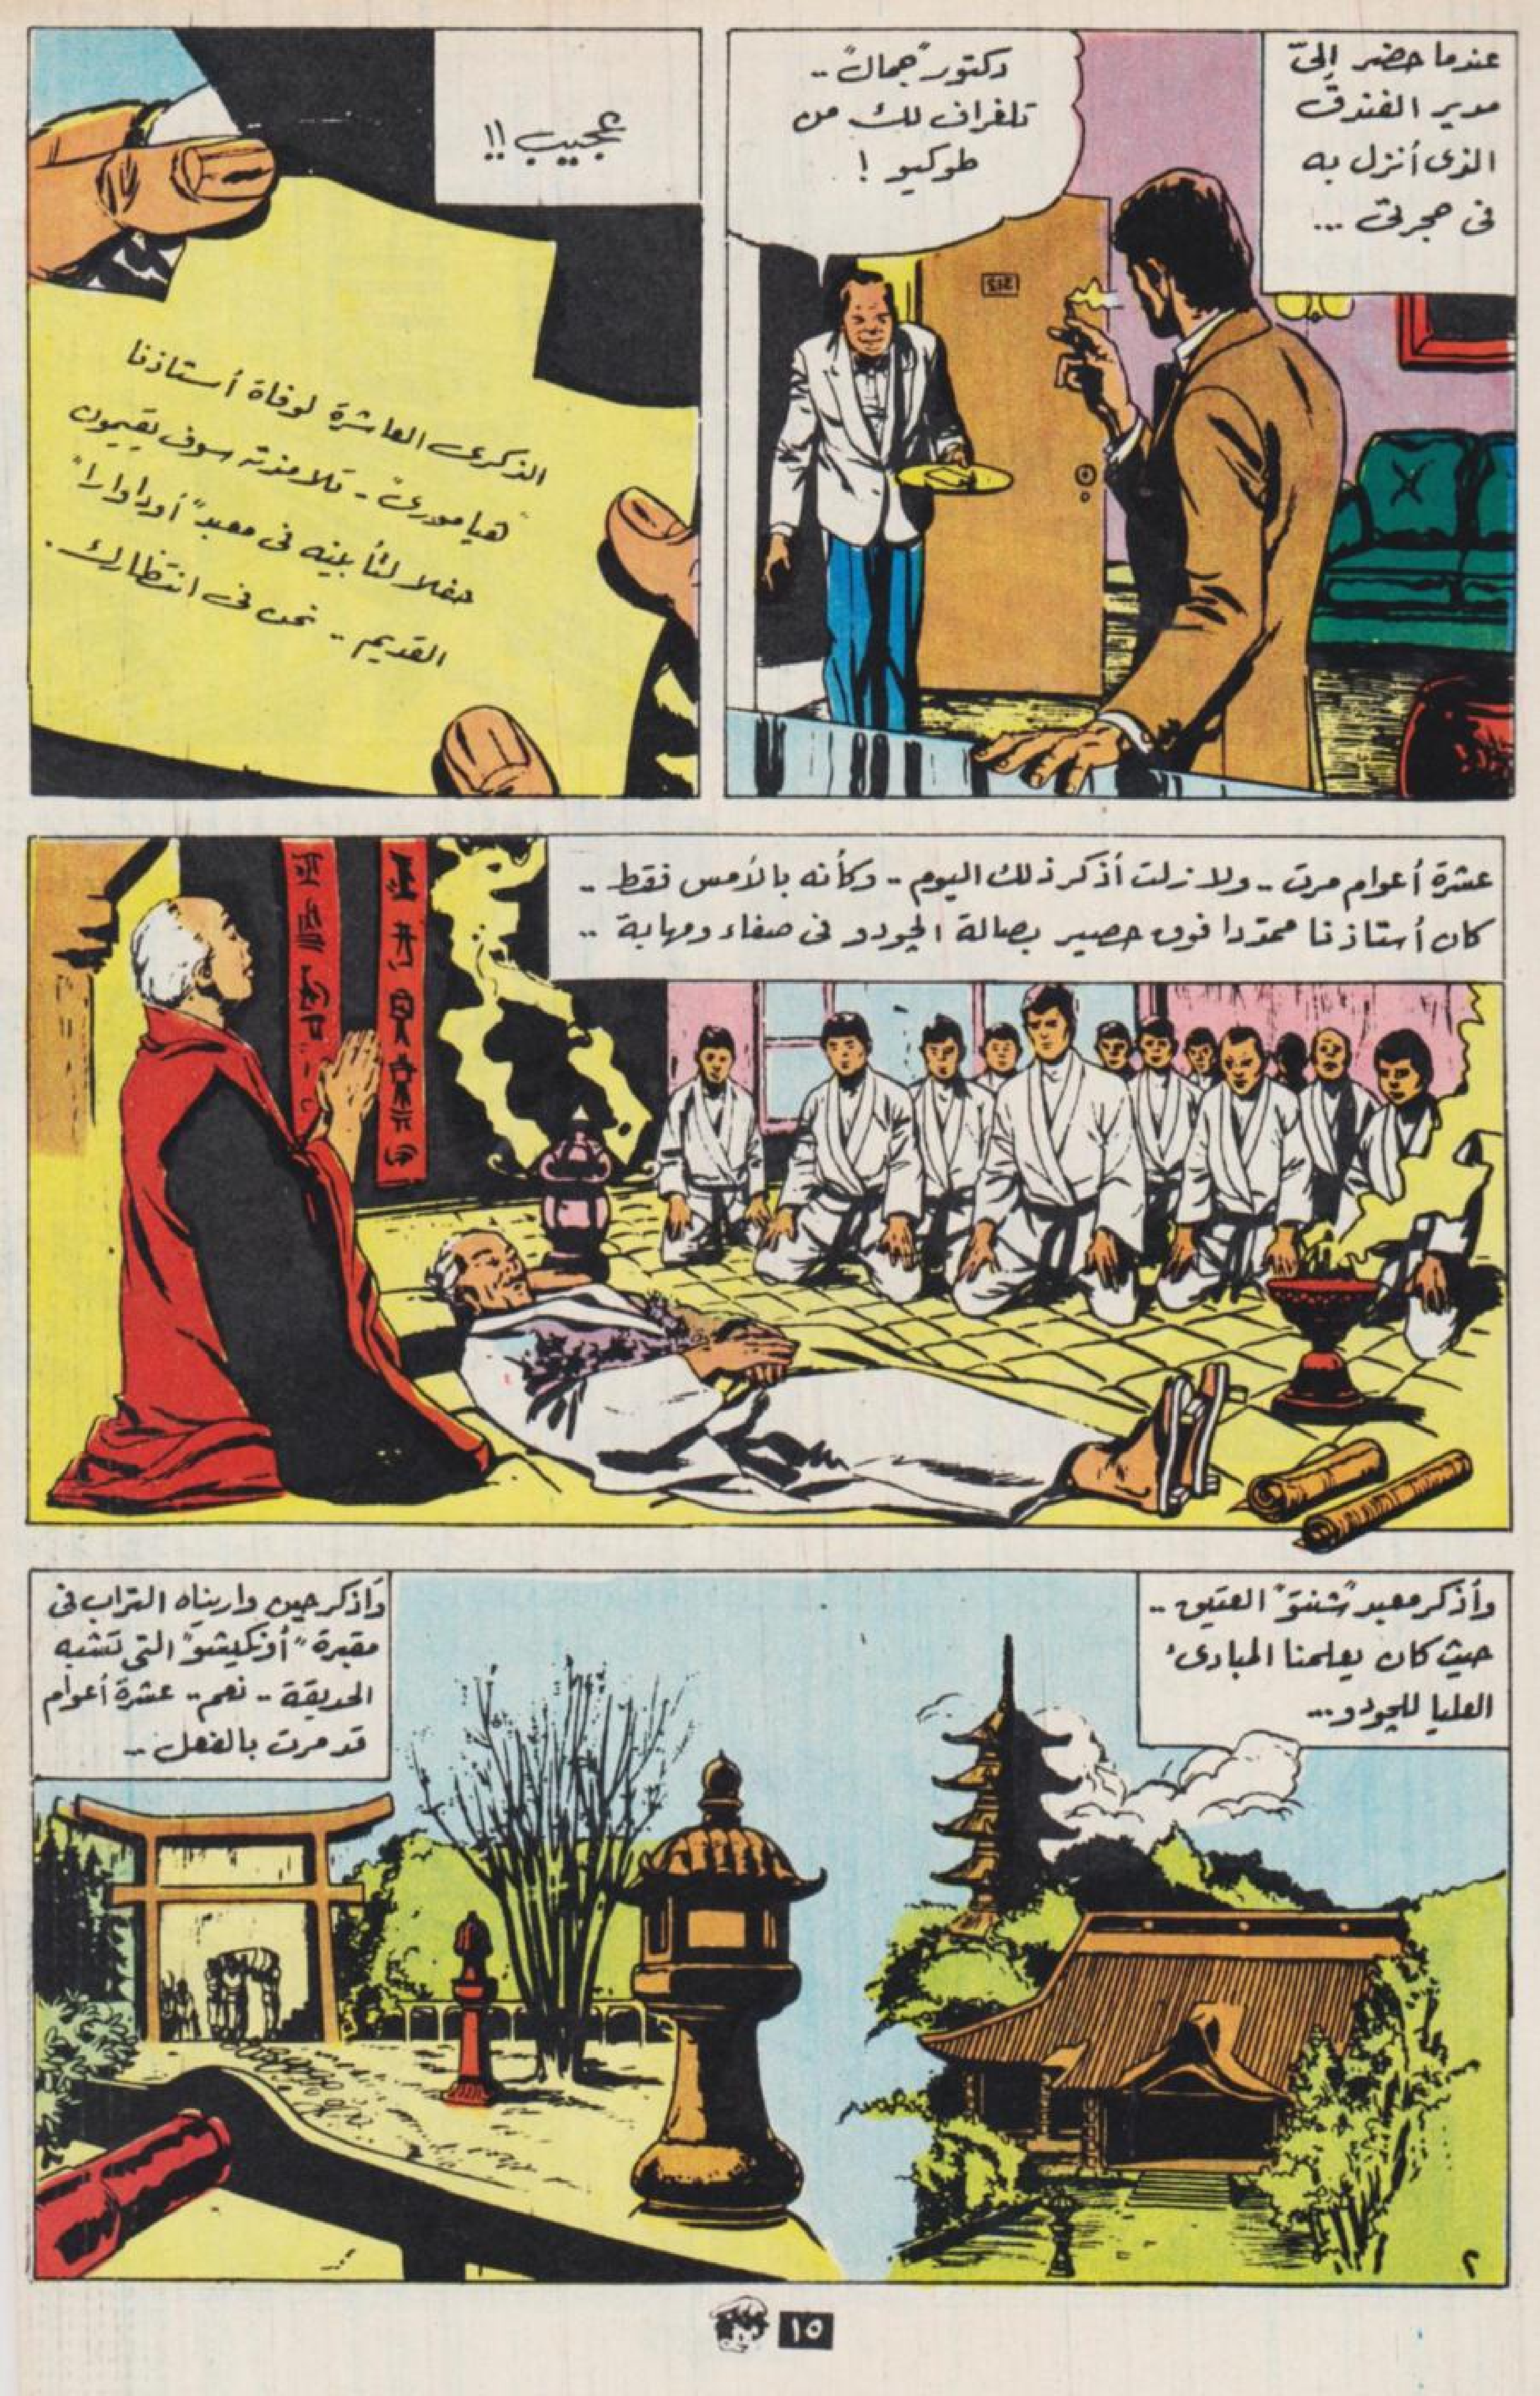 عندما حضر إلىّ
مدير الفندق
الذى أنزل به
فى حجرتى ...
دكتور "جمال" ..
تلغراف لك من
طوكيو !
عجيب !!
الذكرى العاشرة لوفاة أستاذنا
"هيامورى" - تلامذته سوف يقيمون
حفلا لتأبينه فى معبد "أوداوارا"
القديم .. نحن فى انتظارك .
عشرة أعوام مرت .. ولا زلت أذكر ذلك اليوم .. وكأنه بالأمس فقط ..
كان أستاذنا ممددا فوق حصير بصالة الجودو فى صفاء ومهابة ..
وأذكر معبد "شنتو" العتيق ..
حيث كان يعلمنا المبادىء
العليا للجودو ...
وأذكر حين واريناه التراب فى
مقبرة "أونكيشو" التى تشبه
الحديقة .. نعم .. عشرة أعوام
قد مرت بالفعل ..
٢
١٥